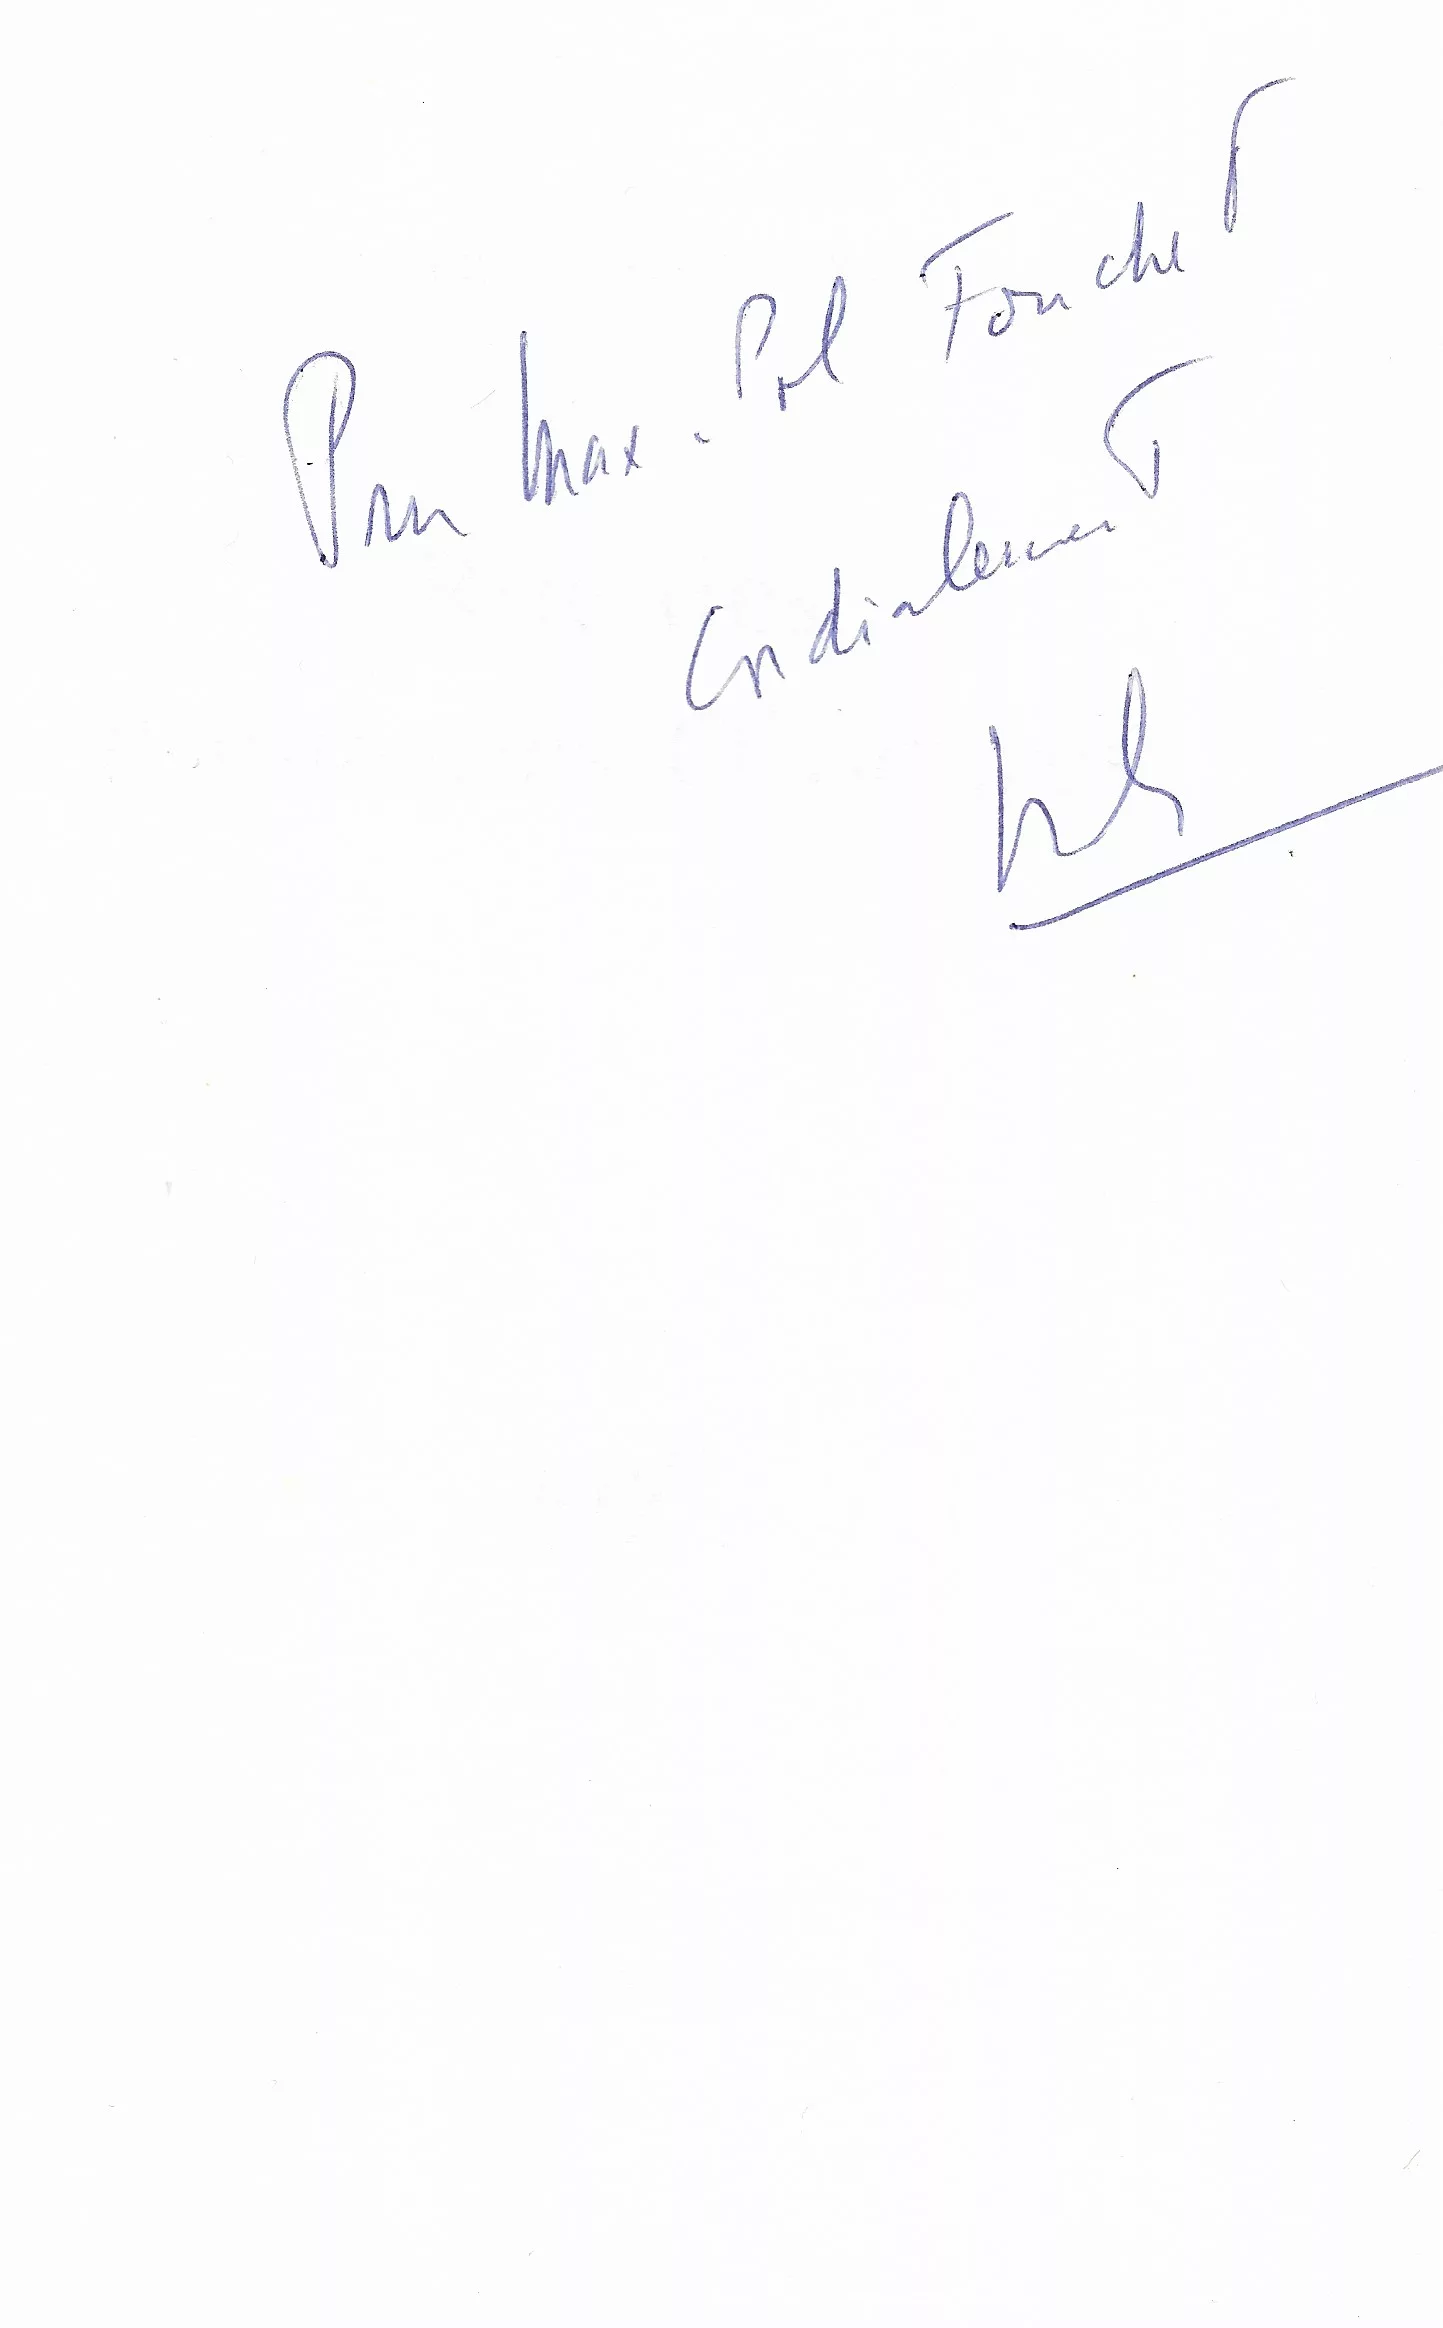 Pour Max-Pol Fouchet
Cordialement